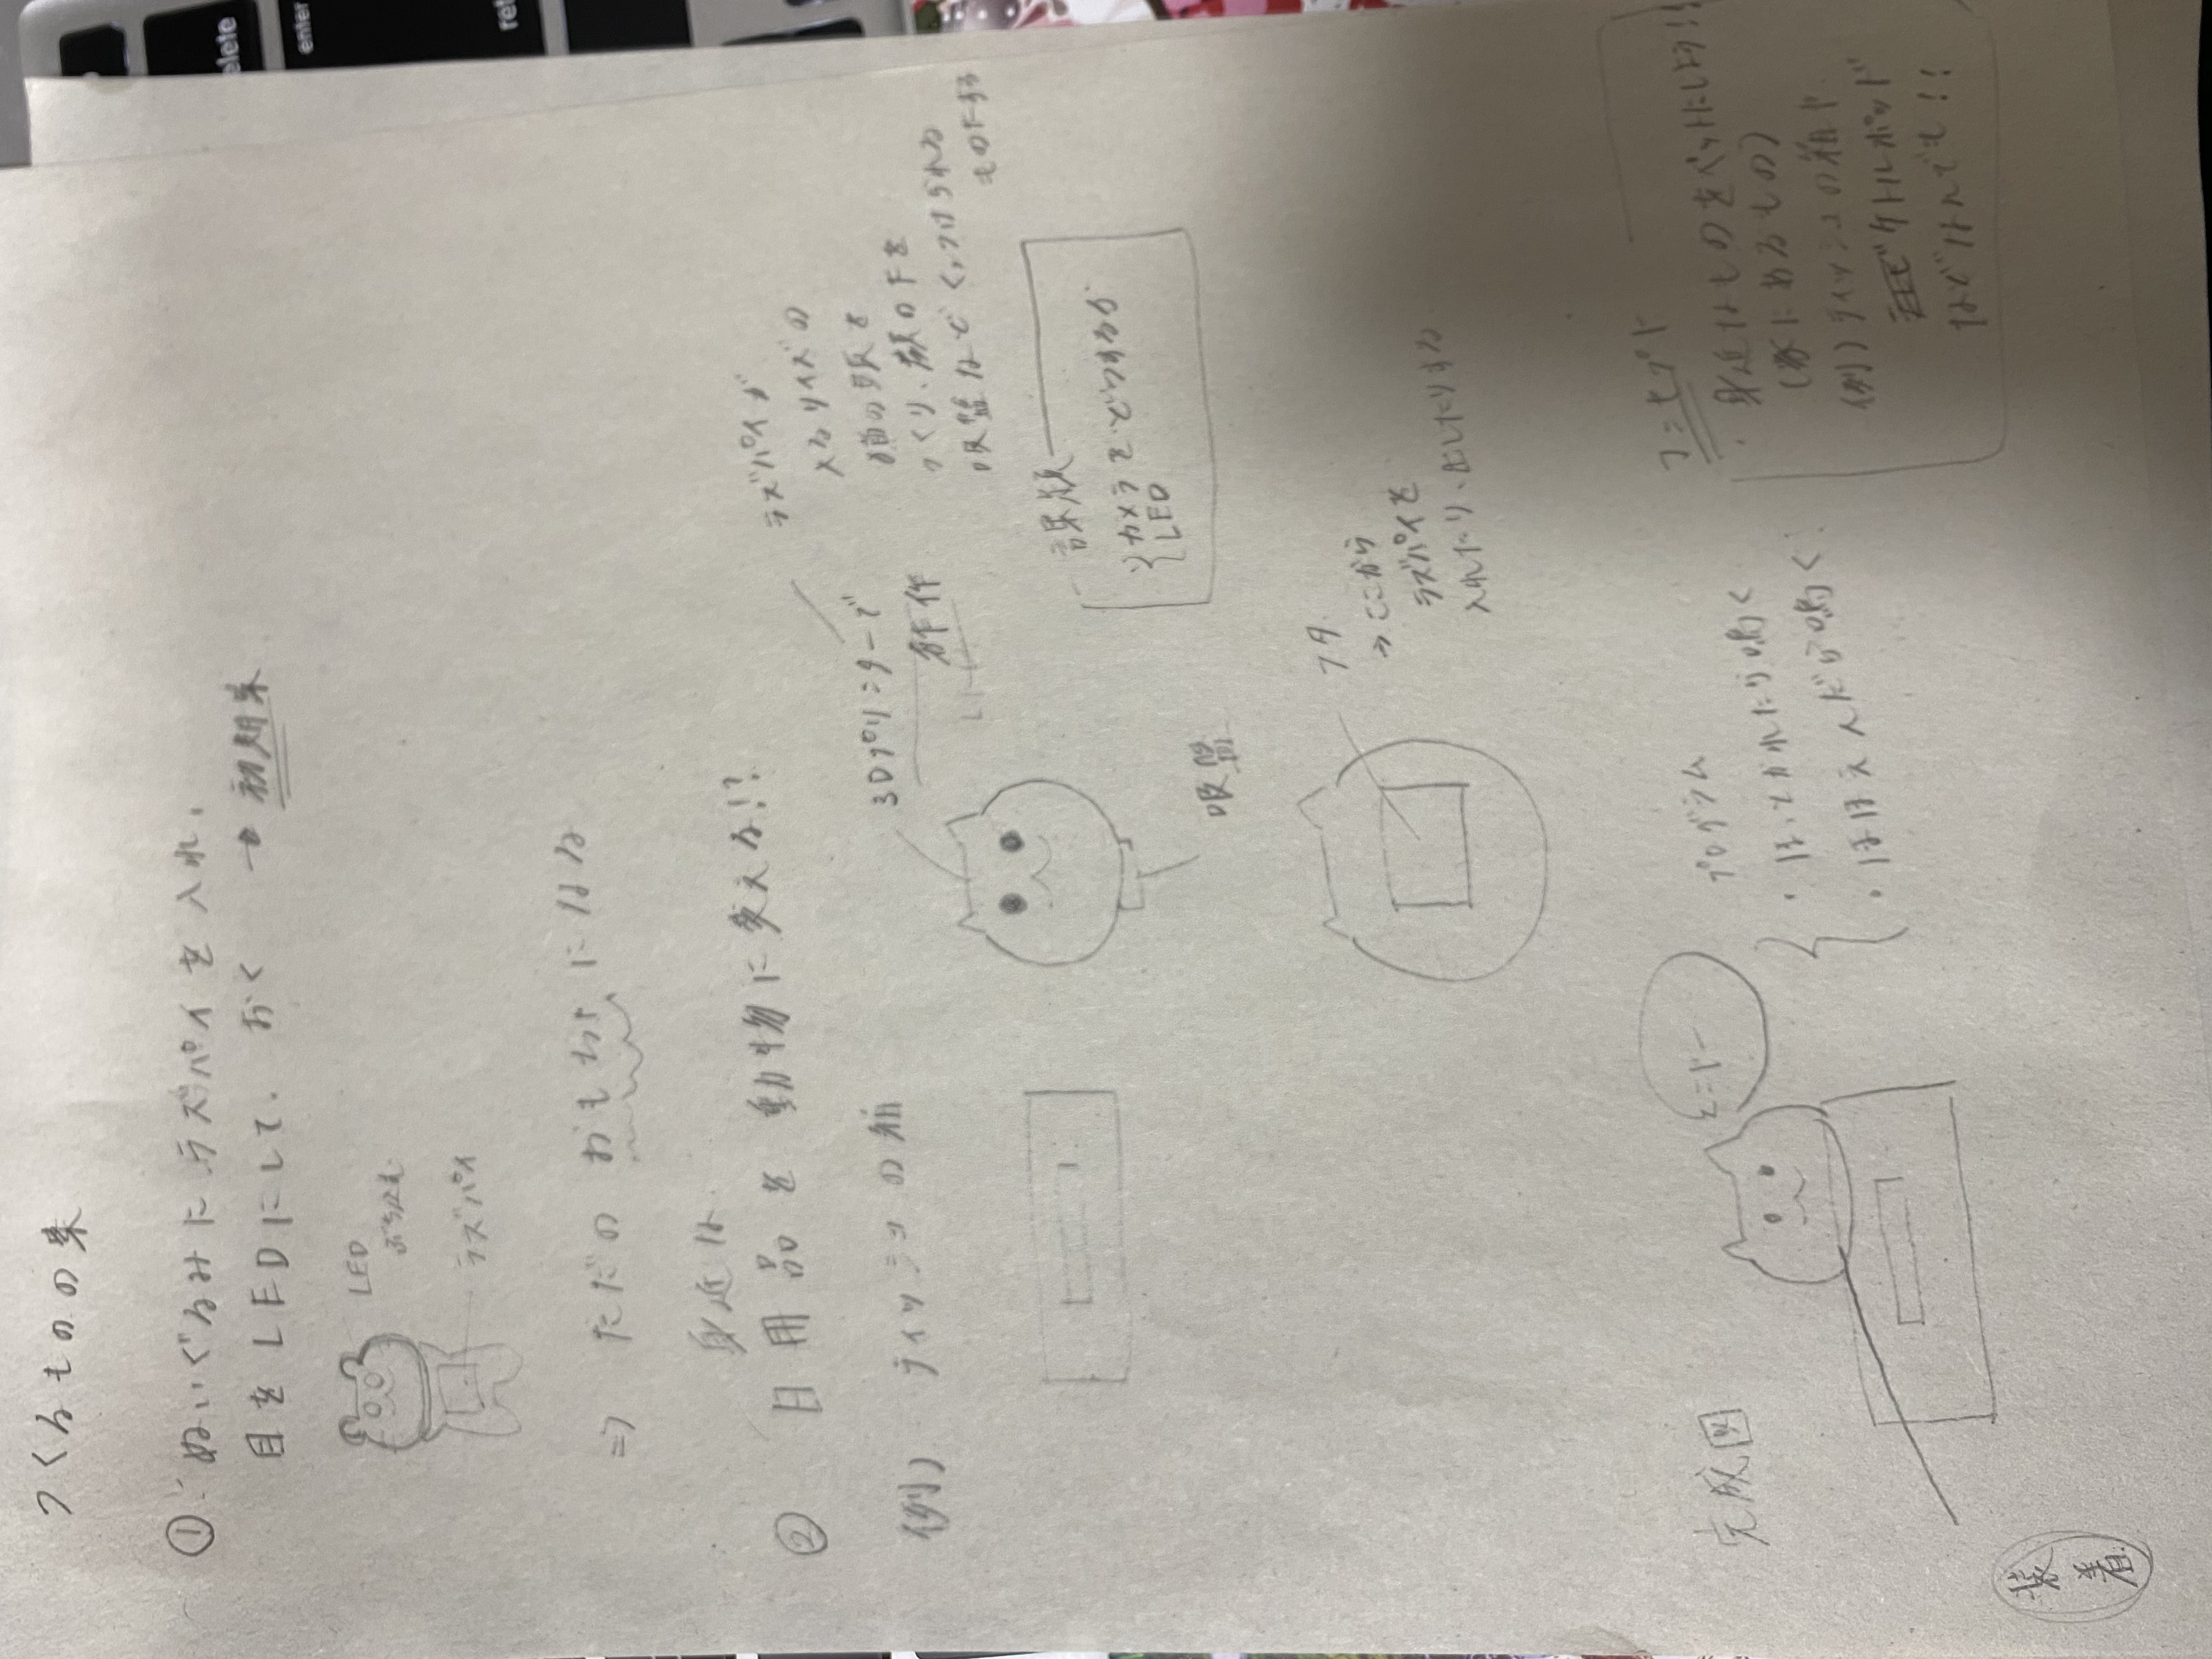 つくるものの案
① ぬいぐるみに ラズパイを入れ、
目をLEDにして、おく → 初期案
LED
ぶち込む
ラズパイ
⇒ ただの おもちゃ になる
身近な
② 日用品を動物に変える!?
例) ティッシュの箱
3Dプリンターで
作
ラズパイが
入るサイズの
猫の頭を
つくり、顔の下を
吸盤などくっつけられる
ものにする
課題
カメラをどうするか
LED
吸盤
フタ
→ここから
ラズパイを
入れたり、出したりする
完成図
プログラム
・ほっとかれたら鳴く
・ほほえんだら鳴く
コンセプト
・身近なものをペットにしよう!!
(家にあるもの)
(例)ティッシュの箱や
ケトルポッド
などなんでも!!
装
着
delete
enter
ret